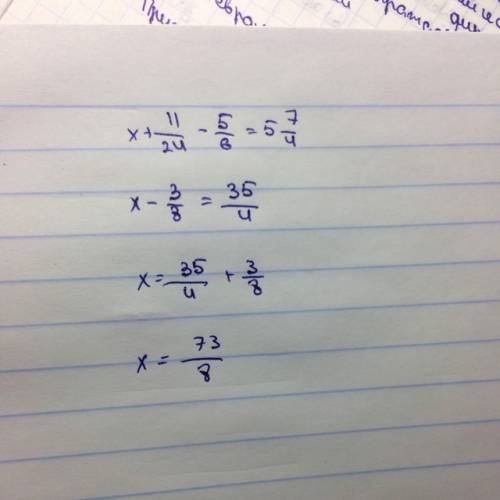 x + 11/24 - 5/6 = 5 7/4
x - 3/8 = 35/4
x = 35/4 + 3/8
x = 73/8